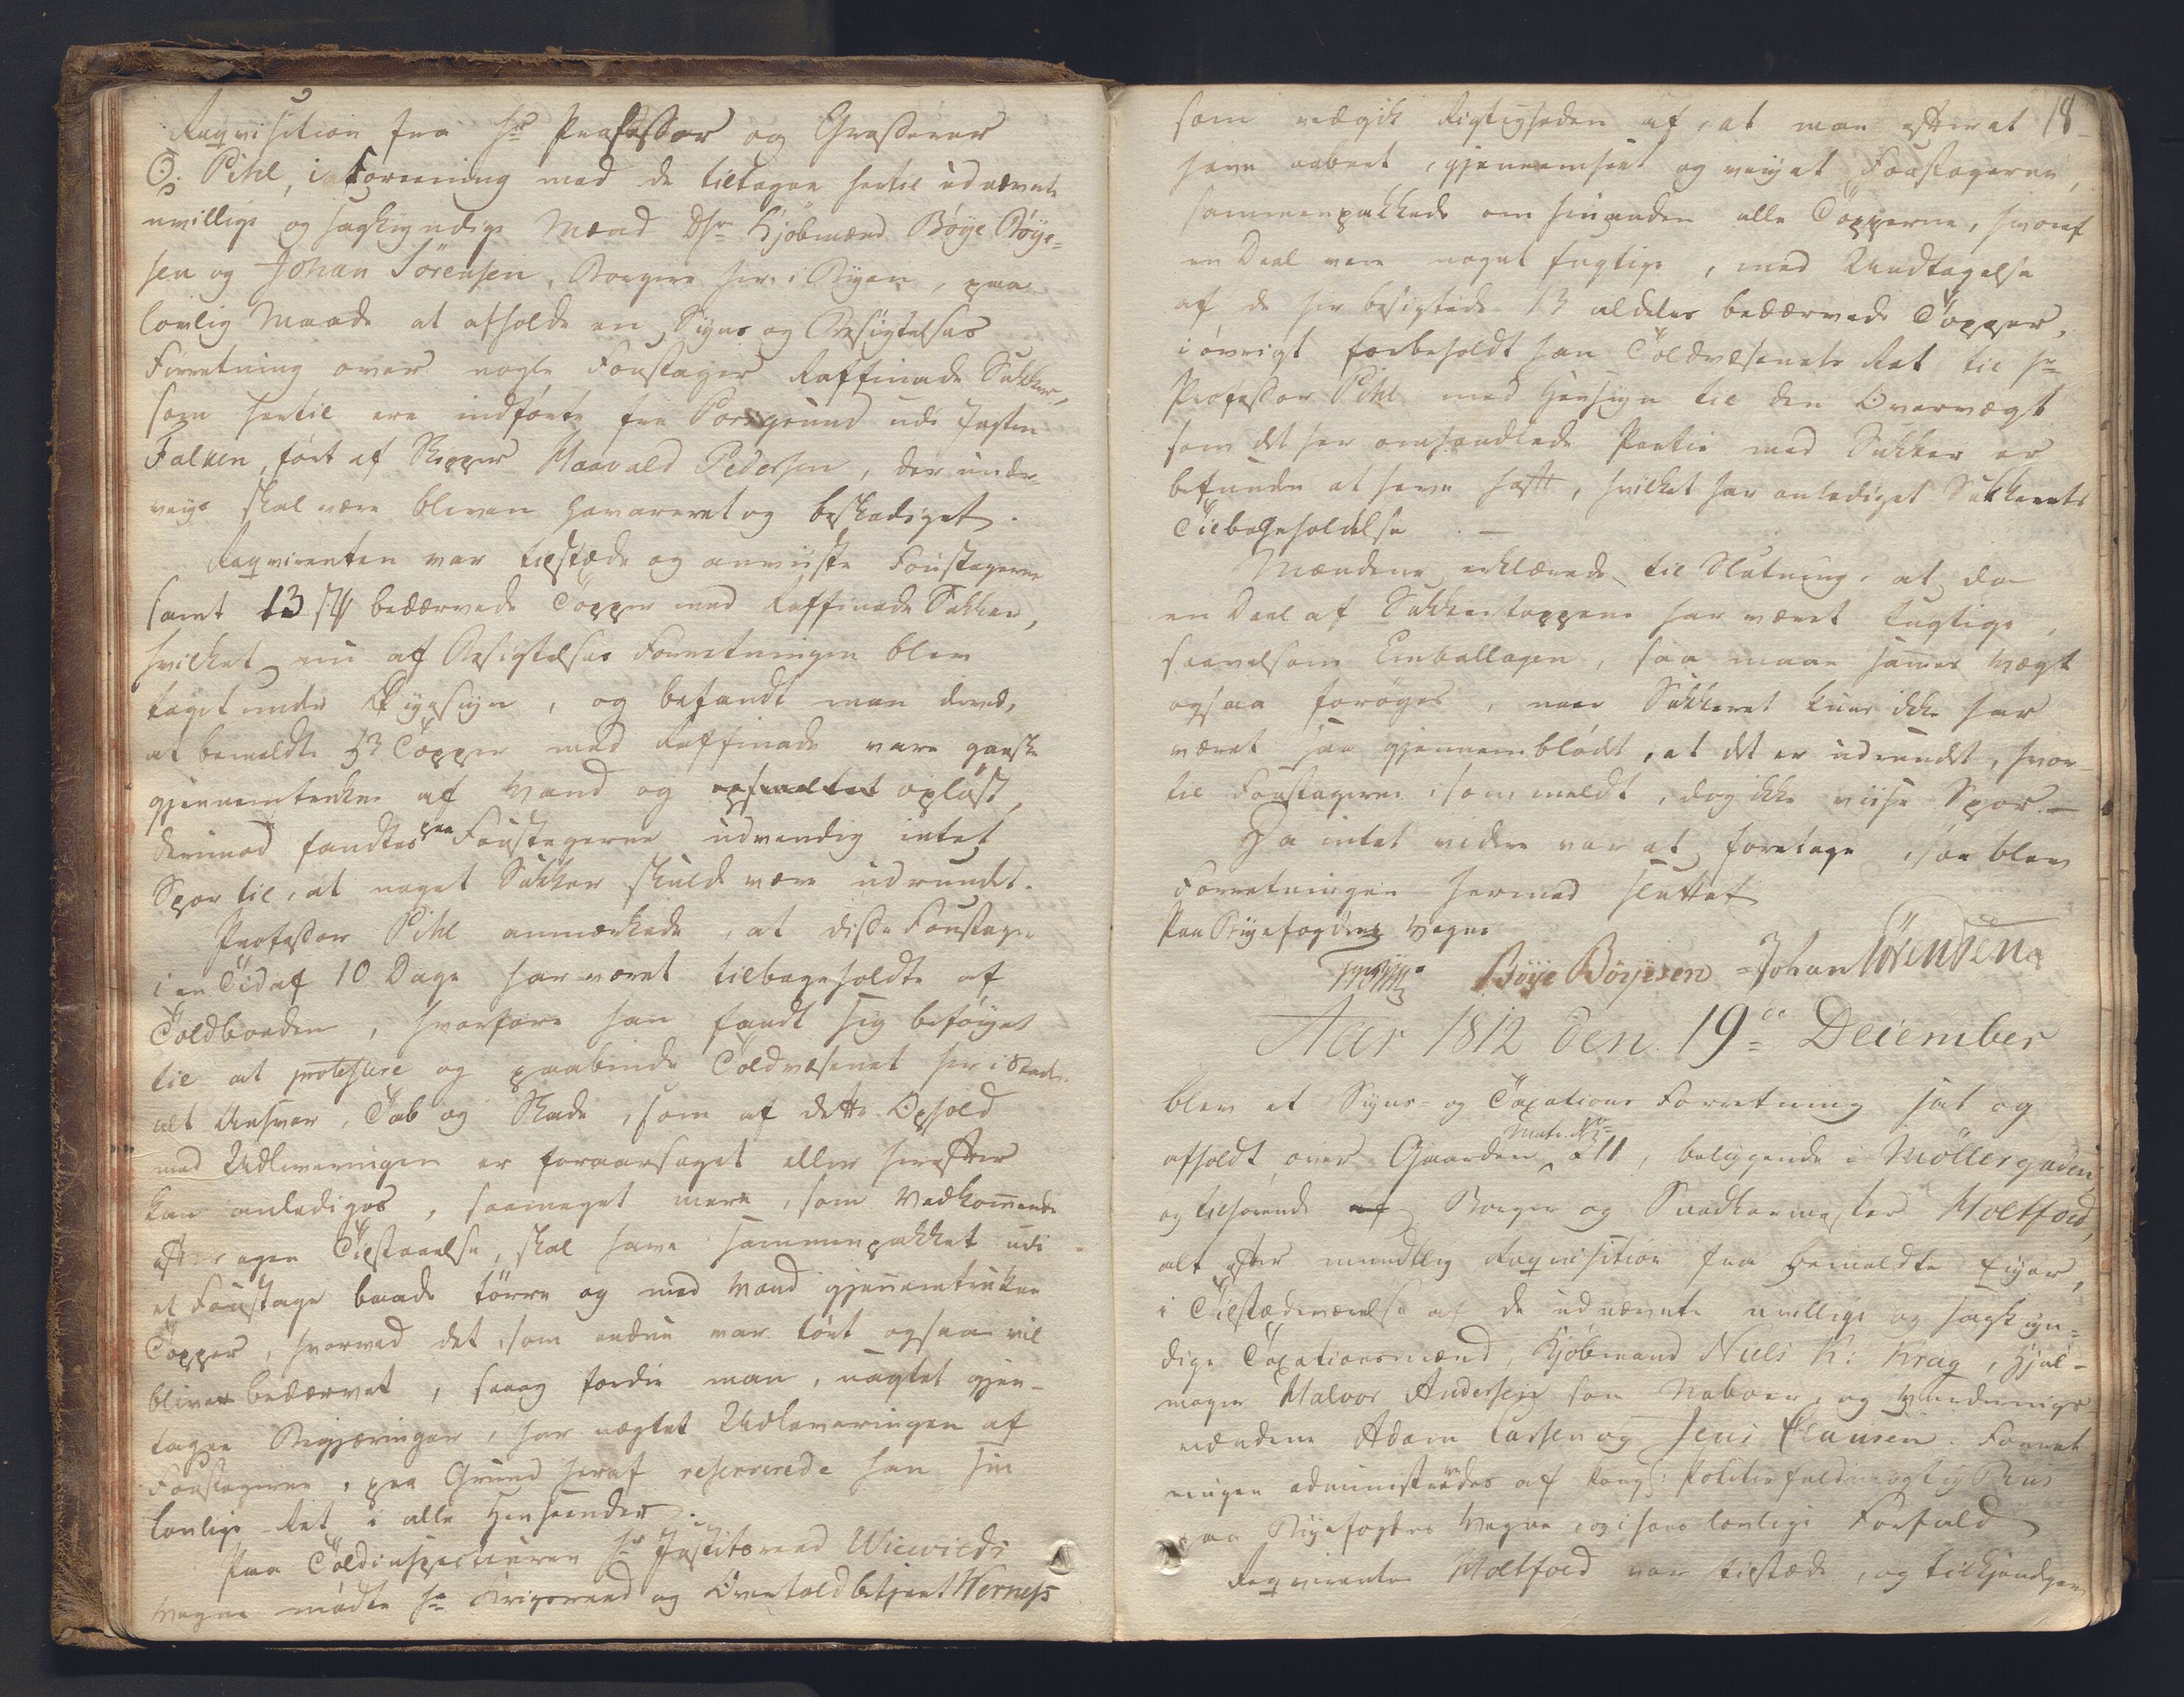 Reqvisition fra Hr Professor og Grosserer
O. Pihl, i Forening med de tiltagne hertil udnævnte
uvillige og sagkyndige Mænd DHr Kjöbmænd Böÿe Böÿe=
sen og Johan Sörensen, Borgere her i Byen, paa
lovlig Maade at afholde en Siÿns og Besigtelses
Forretning over nogle Foustager Raffinade Sukker,
som hertil ere indförte fra Porsgrund udi Jagten
Falken, fört af Skipper Haavald Pedersen, der under-
veÿs skal være bleven havareret og beskadiget.
Reqvirenten var tilstæde og anviiste Foustagerne
samt 13 stk bedærvede Topper med Raffinade Sukker,
hvilket nu af Besigtelses Forretningen blev
taget under Öÿesiÿn, og befandt man derved,
at bemeldte 13 Topper med Raffinade vare ganske
gjennemtrukne af Vand og opsmeltet oplöst,
derimod fandtes paa Foustagerne udvendig intet
Spor til, at noget Sukker skulde være udrundet.
Professor Pihl anmærkede, at disse Foustager
i en Tid af 10 Dage har været tilbageholdte af
Toldboeden, hvorfore han fandt sig beföÿet
til at protestere og paabinde Toldvæsenet her i Stæden
alt Ansvar, Tab og Skade, som af dette Ophold
med Udleveringen er foraarsaget eller herefter
kan anlediges, saameget mere, som Vedkommende
efter egen Tilstaaelse, skal have sammenpakket udi
et Foustage baade törre og med Vand gjennemtrukne
Topper, hvorved det, som endnu var tört ogsaa vil
bliver bedærvet, saaog fordie man, uagtet gjen-
tagne Begjæringer, har nægtet Udleveringen af
Foustagerne, paa Grund heraf reserverede han sin
lovlige Ret i alle Henseender.
Paa Toldinspecteuren Hr Justitsraad Wiewilds
Vegne mödte Hr Krigsraad og Overtoldbetjent Werness
18
som vedgik Rigtigheden af, at man efterat
have aabnet, gjennemseet og veÿet Foustagerne,
sammenpakkede om hinanden alle Topperne, hvoraf
en Deel vare noget fugtige, med Undtagelse
af de her besigtede 13 aldeles bedærvede Topper,
i övrigt forbeholdt han Toldvæsenets Ret til Hr
Professor Pihl med Hensiÿn til den Overvægt
som det her omhandlede Partie med Sukker er
befunden at have havt, hvilket har anlediget Sukkerets
Tilbageholdelse. —
Mændene erklærede til Slutning, at da
en Deel af Sukkertoppene har været fugtige,
saavelsom Emballagen, saa maae sammes Vægt
ogsaa foröges, naar Sukkeret kuns ikke har
været saa gjennemblödt, at det er udrundet, hvor-
til Foustagerne, som meldt, dog ikke viise Spor. —
Da intet videre var at foretage, saa blev
Forretningen hermed sluttet
Paa Bÿefogdens Vegne
Böÿe Böÿesen Johan Sörensen
Aar 1812 den 19de December
blev et Siÿns- og Taxations Forretning sat og
afholdt over Gaarden Matr. No 211, beliggende i Möllergaden
og tilhörende af Borger og Snedkermester Holtfod,
alt efter mundtlig Reqvisition fra bemeldte Eÿer,
i Tilstædeværelse af de udnævnte uvillige og sagkÿn=
dige Taxationsmænd, Kjöbmand Niels K: Krag, Hjul-
mager Halvor Andersen som Naboer, og Vurderings
mændene Adam Larsen og Jens Clausen. Forret
ningen administreredes af Kongl: Politiefuldmægtig
paa Bÿefogdens Vegne, og i hans lovlige Forfald
Reqvirenten Holtfod var tilstæde, og tilkjendgav